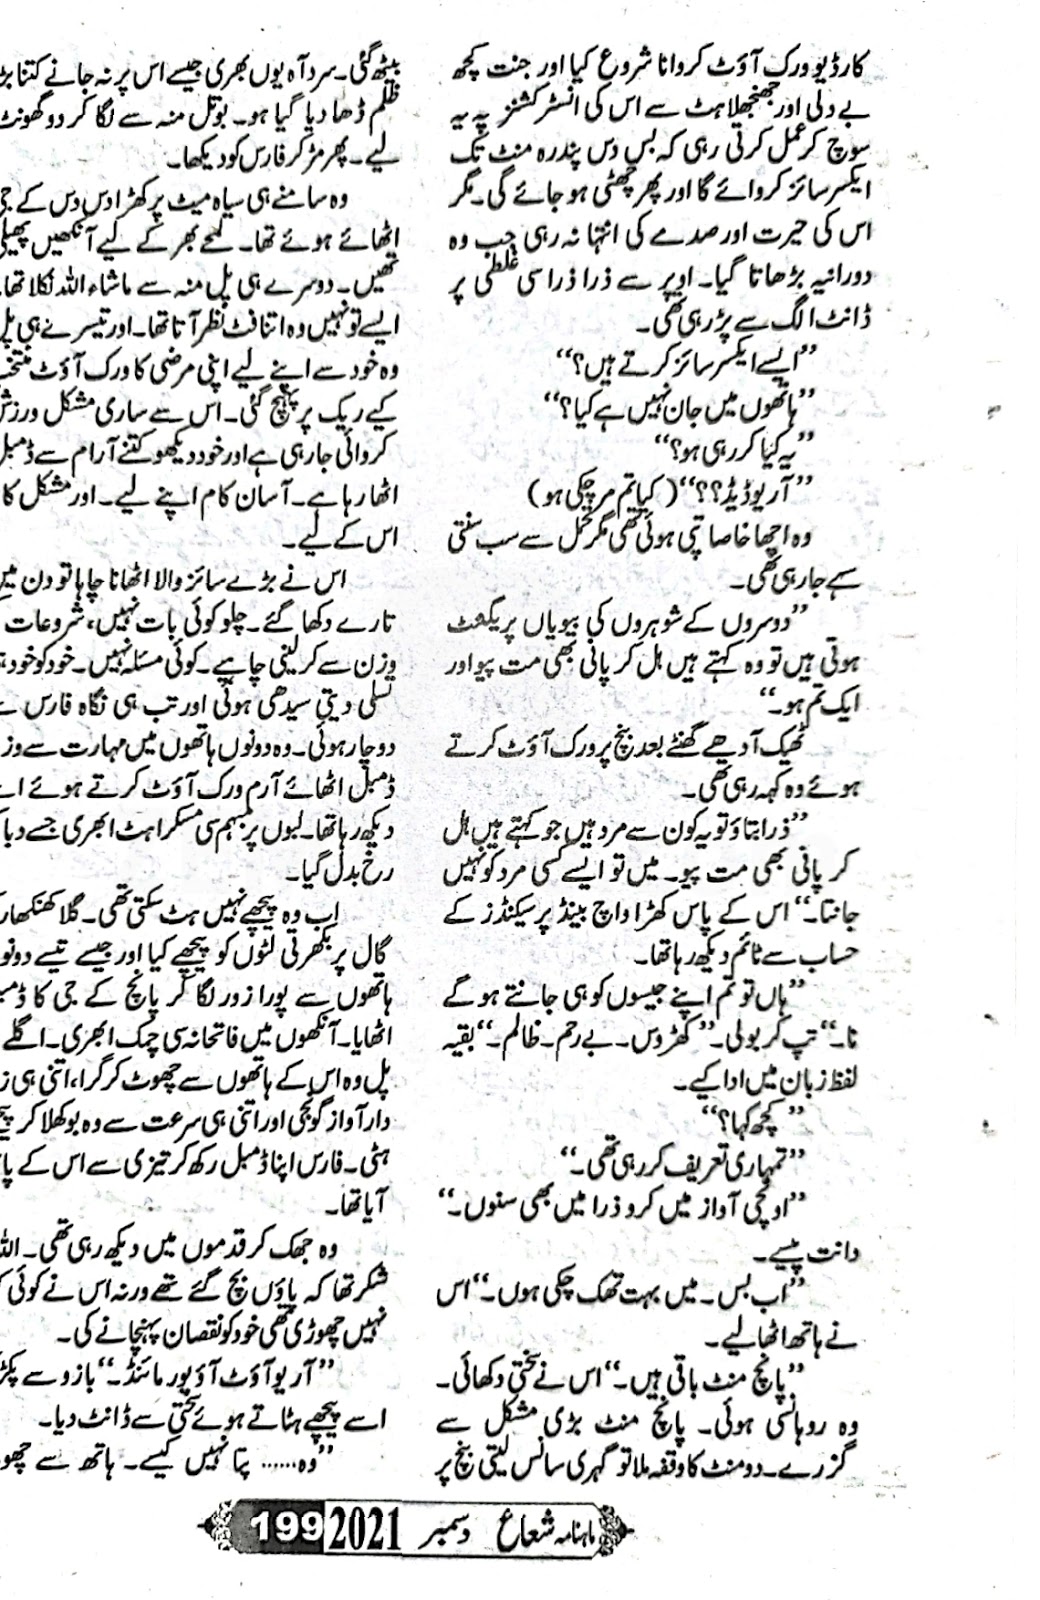 کارڈیو ورک آؤٹ کروانا شروع کیا اور جنت کچھ
بے دلی اور جھنجھلاہٹ سے اس کی انسٹرکشنز پہ یہ
سوچ کر عمل کرتی رہی کہ بس دس پندرہ منٹ تک
ایکسرسائز کروائے گا اور پھر چھٹی ہو جائے گی۔ مگر
اس کی حیرت اور صدمے کی انتہا نہ رہی جب وہ
دورانیہ بڑھاتا گیا۔ اوپر سے ذرا ذرا سی غلطی پر
ڈانٹ الگ سے پڑ رہی تھی۔
”ایسے ایکسرسائز کرتے ہیں؟“
”ہاتھوں میں جان نہیں ہے کیا؟“
”یہ کیا کر رہی ہو؟“
”آر یو ڈیڈ؟؟“ (کیا تم مر چکی ہو)
وہ اچھا خاصا تپی ہوئی تھی مگر تحمل سے سب سنتی
سہے جا رہی تھی۔
”دوسروں کے شوہروں کی بیویاں پریگننٹ
ہوتی ہیں تو وہ کہتے ہیں ہل کر پانی بھی مت پیو اور
ایک تم ہو۔“
ٹھیک آدھے گھنٹے بعد بنچ پر ورک آؤٹ کرتے
ہوئے وہ کہہ رہی تھی۔
”ذرا بتاؤ تو یہ کون سے مرد ہیں جو کہتے ہیں ہل
کر پانی بھی مت پیو۔ میں تو ایسے کسی مرد کو نہیں
جانتا۔“ اس کے پاس کھڑا واچ بینڈ پر سیکنڈز کے
حساب سے ٹائم دیکھ رہا تھا۔
”ہاں تو تم اپنے جیسوں کو ہی جانتے ہو گے
نا۔“ تپ کر بولی۔ ”کھڑوس۔ بے رحم۔ ظالم۔“ بقیہ
لفظ زبان میں ادا کیے۔
”کچھ کہا؟“
”تمہاری تعریف کر رہی تھی۔“
”اونچی آواز میں کرو ذرا میں بھی سنوں۔“
دانت پیسے۔
”اب بس۔ میں بہت تھک چکی ہوں۔“ اس
نے ہاتھ اٹھا لیے۔
”پانچ منٹ باقی ہیں۔“ اس نے سختی دکھائی۔
وہ روہانسی ہوئی۔ پانچ منٹ بڑی مشکل سے
گزرے۔ دو منٹ کا وقفہ ملا تو گہری سانس لیتی بنچ پر
بیٹھ گئی۔ سرد آہ یوں بھری جیسے اس پر نہ جانے کتنا بڑ
ظلم ڈھا دیا گیا ہو۔ بوتل منہ سے لگا کر دو گھونٹ
لیے۔ پھر مڑ کر فارس کو دیکھا۔
وہ سامنے ہی سیاہ میٹ پر کھڑا دس دس کے جی
اٹھائے ہوئے تھا۔ لمحے بھر کے لیے آنکھیں پھیلی
تھیں۔ دوسرے ہی پل منہ سے ماشاء اللہ نکلا تھا
ایسے تو نہیں وہ اتنا فٹ نظر آتا تھا۔ اور تیسرے ہی پل
وہ خود سے اپنے لیے اپنی مرضی کا ورک آؤٹ منتخب
کیے ریک پر پہنچ گئی۔ اس سے ساری مشکل ورزش
کروائی جا رہی ہے اور خود دیکھو کتنے آرام سے ڈمبل
اٹھا رہا ہے۔ آسان کام اپنے لیے۔ اور مشکل کا
اس کے لیے۔
اس نے بڑے سائز والا اٹھانا چاہا تو دن میں
تارے دکھا گئے۔ چلو کوئی بات نہیں، شروعات
وزن سے کر لینی چاہیے۔ کوئی مسئلہ نہیں۔ خود کو خود
تسلی دیتی سیدھی ہوئی اور تب ہی نگاہ فارس سے
دوچار ہوئی۔ وہ دونوں ہاتھوں میں مہارت سے وز
ڈمبل اٹھائے آرم ورک آؤٹ کرتے ہوئے اسے
دیکھ رہا تھا۔ لبوں پر مبہم سی مسکراہٹ ابھری جسے دبا
رخ بدل گیا۔
اب وہ پیچھے نہیں ہٹ سکتی تھی۔ گلا کھنکھار
گال پر بکھرتی لٹوں کو پیچھے کیا اور جیسے تیسے دونو
ہاتھوں سے پورا زور لگا کر پانچ کے جی کا ڈمب
اٹھایا۔ آنکھوں میں فاتحانہ سی چمک ابھری۔ اگلے
پل وہ اس کے ہاتھوں سے چھوٹ کر گرا، اتنی ہی ز
دار آواز گونجی اور اتنی ہی سرعت سے وہ بوکھلا کر پیچ
ہٹی۔ فارس اپنا ڈمبل رکھ کر تیزی سے اس کے پا
آیا تھا۔
وہ جھک کر قدموں میں دیکھ رہی تھی۔ اللہ
شکر تھا کہ پاؤں بچ گئے تھے ورنہ اس نے کوئی
نہیں چھوڑی تھی خود کو نقصان پہنچانے کی۔
”آر یو آؤٹ آف یور مائنڈ۔“ بازو سے پکڑ
اسے پیچھے ہٹاتے ہوئے سختی سے ڈانٹ دیا۔
”وہ...... پتا نہیں کیسے۔ ہاتھ سے چھو
ماہنامہ شعاع دسمبر 2021 199